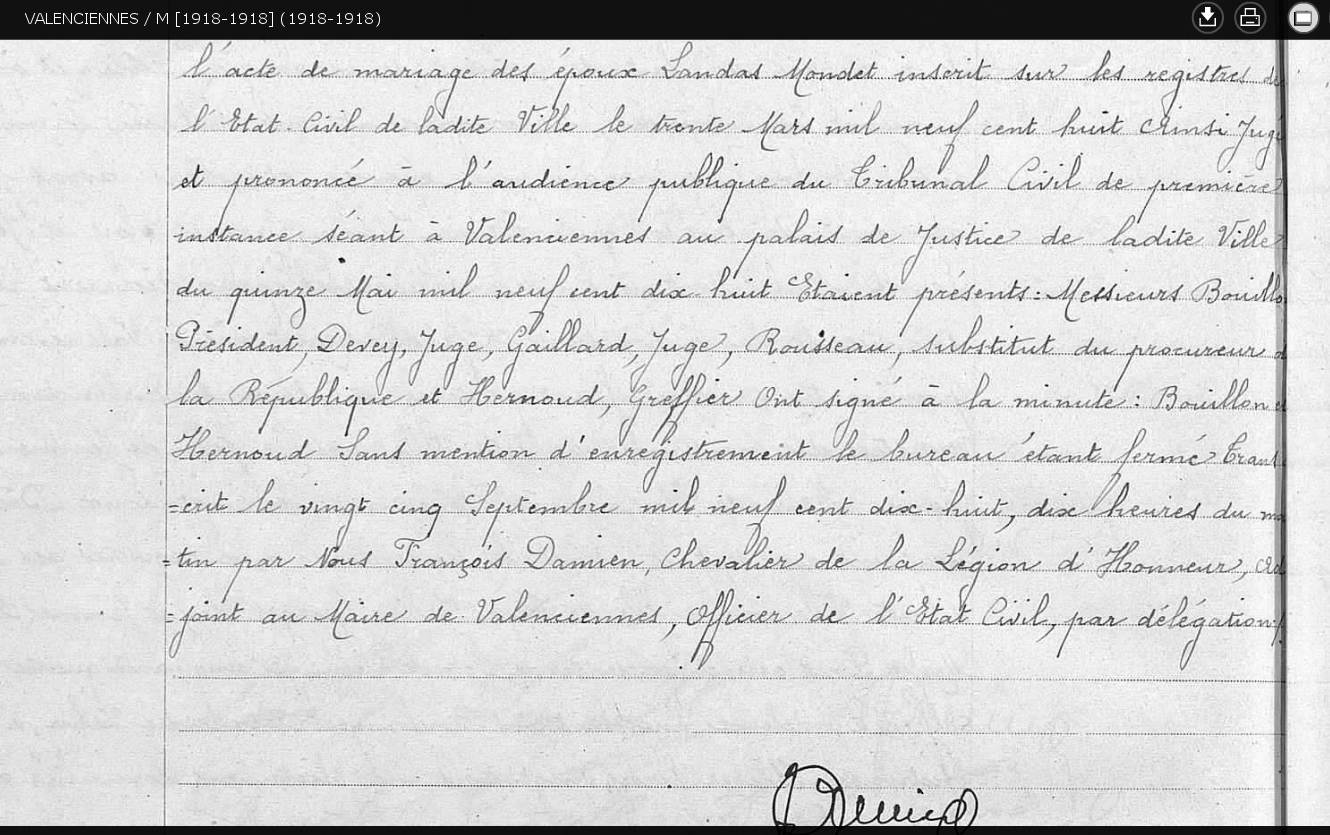 VALENCIENNES / M [1918-1918] (1918-1918)
l'acte de mariage des époux Landas Mondet inscrit sur les registres de
l'Etat-Civil de ladite Ville le trente Mars mil neuf cent huit Ainsi Jugé
et prononcé à l'audience publique du Tribunal Civil de première
instance séant à Valenciennes au palais de Justice de ladite Ville
du quinze Mai mil neuf cent dix-huit Etaient présents: Messieurs Bouillo
Président, Devey, Juge, Gaillard, Juge, Rousseau, substitut du procureur d
la République et Hernoud, Greffier Ont signé à la minute: Bouillon et
Hernoud Sans mention d'enregistrement le bureau étant fermé Trans
=crit le vingt cinq Septembre mil neuf cent dix-huit, dix heures du ma
=tin par Nous François Damien, Chevalier de la Légion d'Honneur, Ad
=joint au Maire de Valenciennes, Officier de l'Etat Civil, par délégation/.